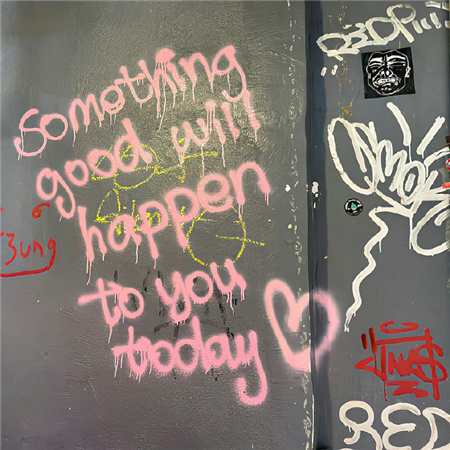 Something
good will
happen
to you
today
3ung
RED